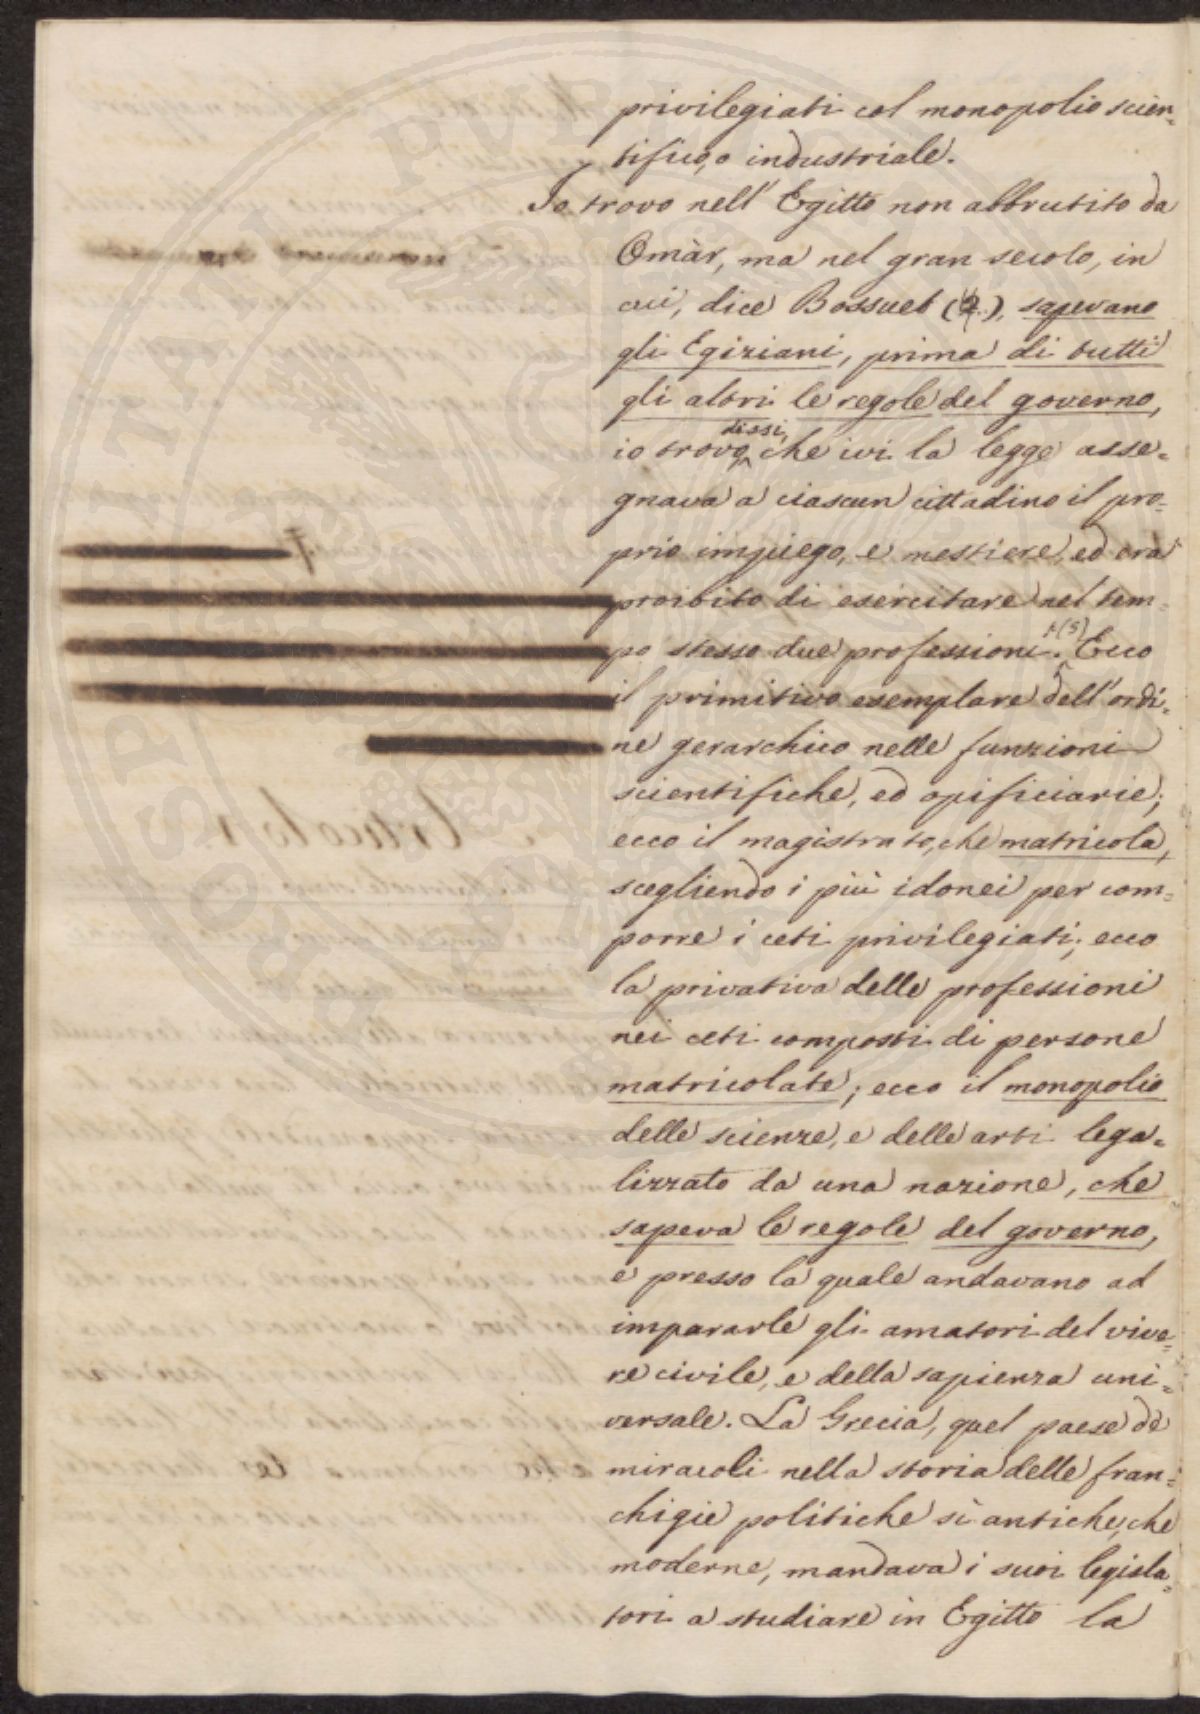 privilegiati col monopolio scien=
tifico, o industriale.
Io trovo nell' Egitto non abbrutito da
Omàr, ma nel gran secolo, in
cui, dice Bossuet (2), sapevano
gli Egiziani, prima di tutti
gli altri le regole del governo,
io trovo, dissi, che ivi la legge asse=
gnava a ciascun cittadino il pro=
prio impiego, e mestiere, ed era
proibito di esercitare nel tem=
po stesso due professioni. (5) Ecco
il primitivo esemplare dell' ordi=
ne gerarchico nelle funzioni
scientifiche, ed opificiarie;
ecco il magistrato, che matricola,
scegliendo i più idonei per com=
porre i ceti privilegiati; ecco
la privativa delle professioni
nei ceti composti di persone
matricolate; ecco il monopolio
delle scienze, e delle arti lega=
lizzato da una nazione, che
sapeva le regole del governo,
e presso la quale andavano ad
impararle gli amatori del vive=
re civile, e della sapienza uni=
versale. La Grecia, quel paese di
miracoli nella storia delle fran=
chigie politiche sì antiche, che
moderne, mandava i suoi legisla=
tori a studiare in Egitto la